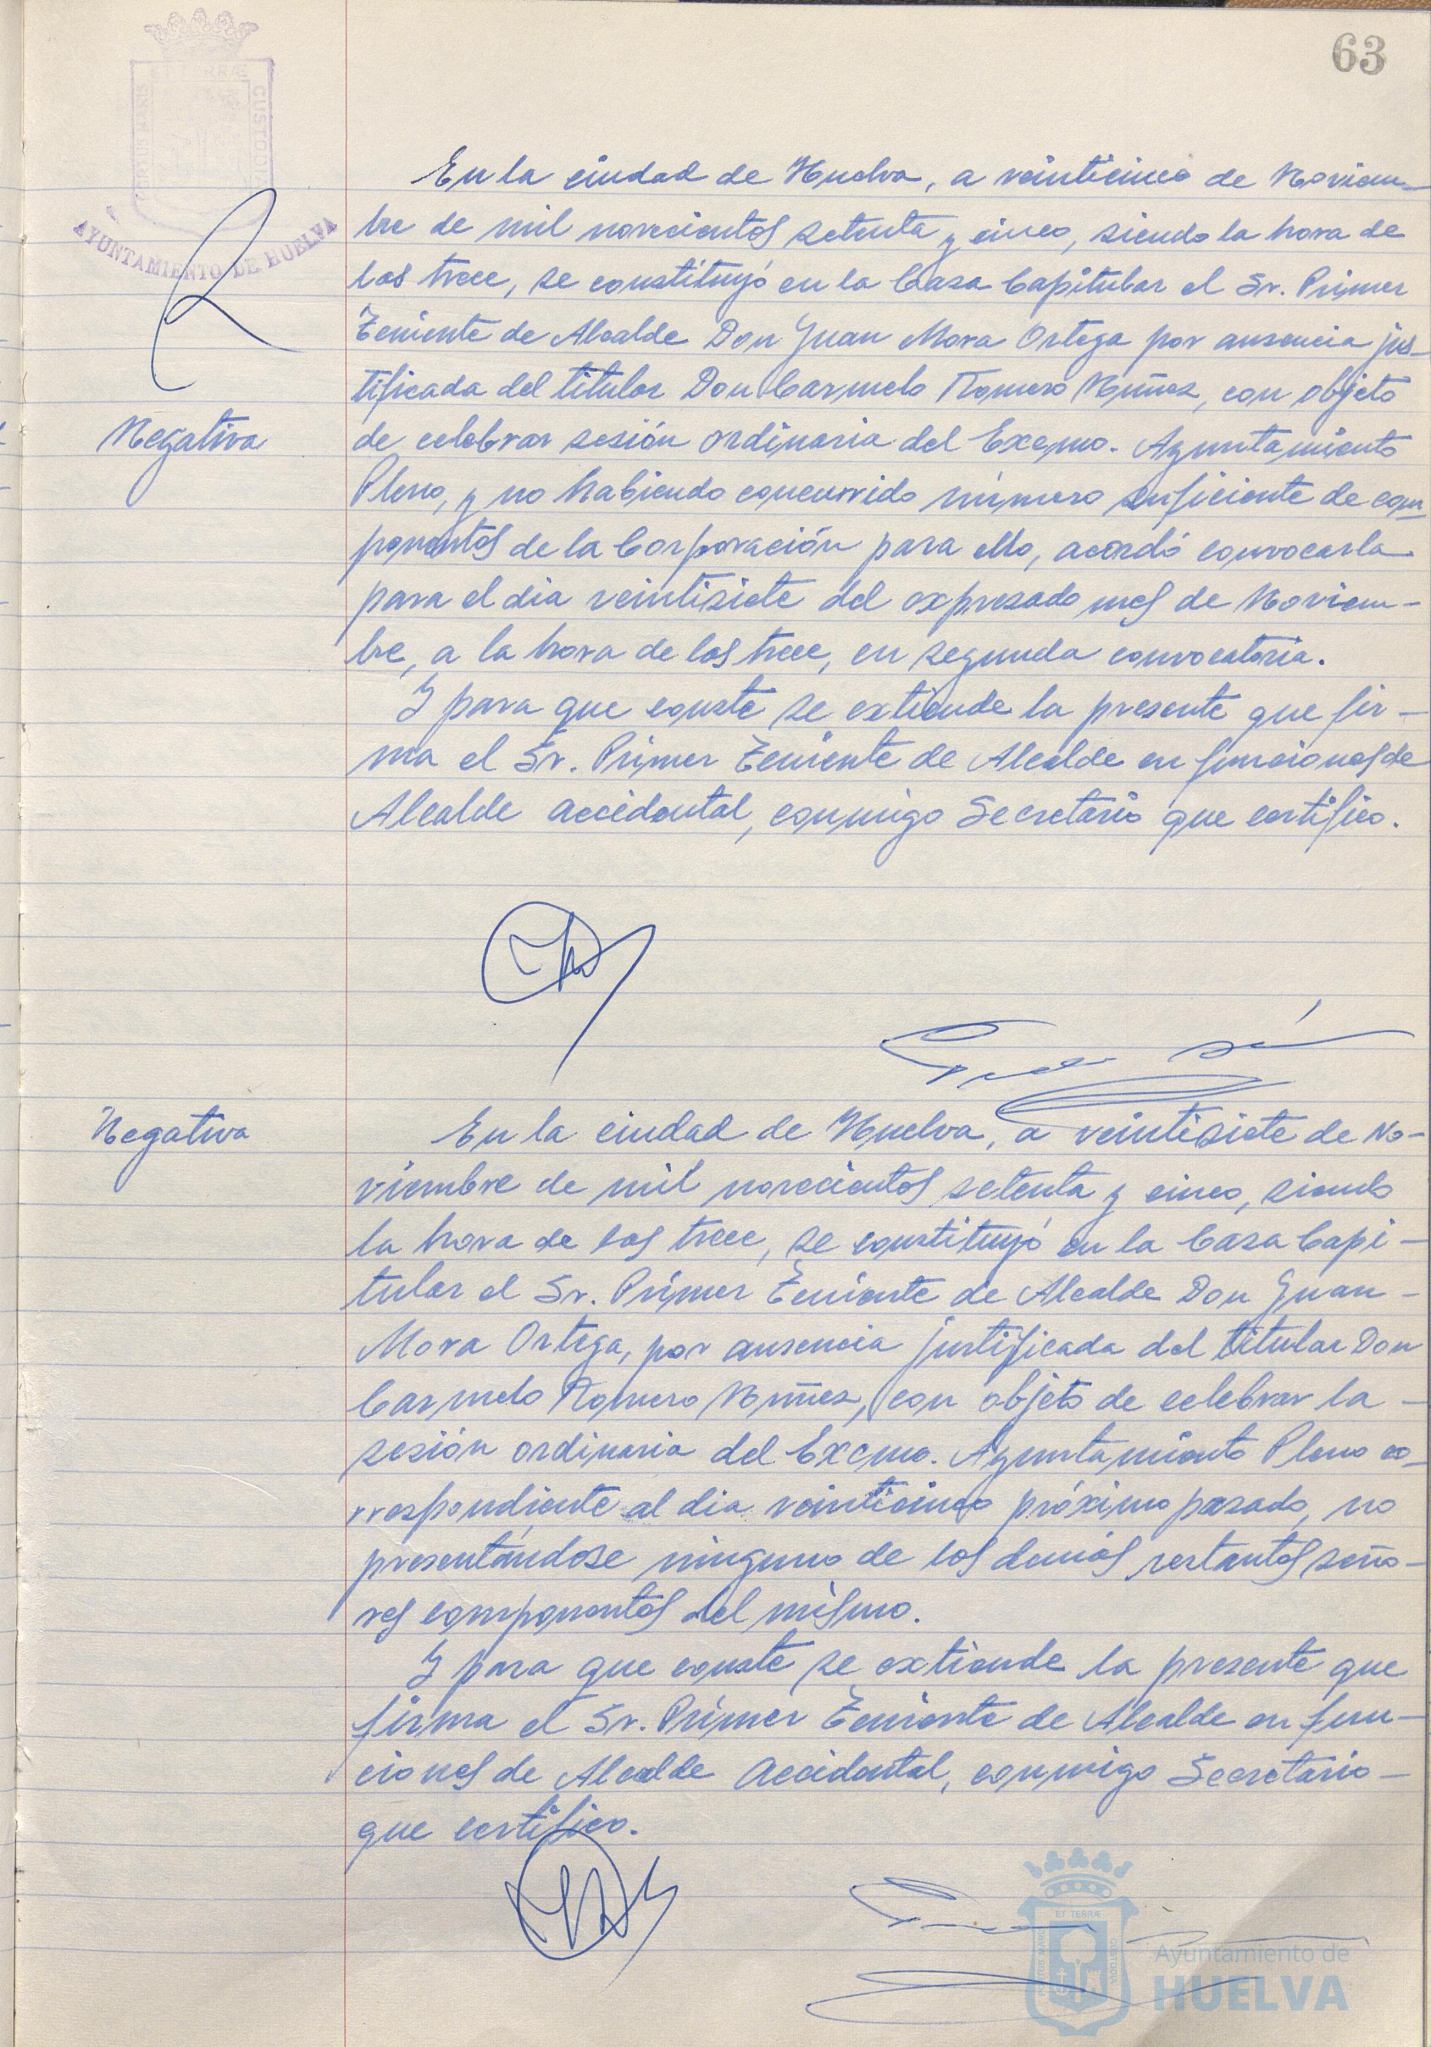 63
PORTUS MARIS
ET TERRÆ
CUSTODIA
AYUNTAMIENTO DE HUELVA
En la ciudad de Huelva, a veinticinco de Noviem-
bre de mil novecientos setenta y cinco, siendo la hora de
las trece, se constituyó en la Casa Capitular el Sr. Primer
Teniente de Alcalde Don Juan Mora Ortega por ausencia jus-
tificada del titular Don Carmelo Romero Núñez, con objeto
Negativa
de celebrar sesión ordinaria del Excmo. Ayuntamiento
Pleno, y no habiendo concurrido número suficiente de com-
ponentes de la Corporación para ello, acordó convocarla
para el dia veintisiete del expresado mes de Noviem-
bre, a la hora de las trece, en segunda convocatoria.
Y para que conste se extiende la presente que fir-
ma el Sr. Primer Teniente de Alcalde en funciones de
Alcalde accidental, conmigo Secretario que certifico.
Negativa
En la ciudad de Huelva, a veintisiete de No-
viembre de mil novecientos setenta y cinco, siendo
la hora de las trece, se constituyó en la Casa Capi-
tular el Sr. Primer Teniente de Alcalde Don Juan -
Mora Ortega, por ausencia justificada del titular Don
Carmelo Romero Núñez, con objeto de celebrar la -
sesión ordinaria del Excmo. Ayuntamiento Pleno co-
rrespondiente al dia veinticinco próximo pasado, no
presentándose ninguno de los demás restantes seño-
res componentes del mismo.
Y para que conste se extiende la presente que
firma el Sr. Primer Teniente de Alcalde en fun-
ciones de Alcalde Accidental, conmigo Secretario -
que certifico.
PORTUS MARIS
ET TERRÆ
CUSTODIA
Ayuntamiento de
HUELVA